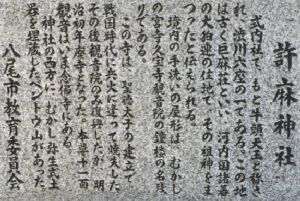 許麻神社
式内社で、もと牛頭天王と称さ
れ、渋川六座の一である。この地
は古く巨麻荘といい、河内国諸蕃
の大狛連の住地で、その祖神を主
つったと伝えられる。
境内の手洗いの屋形は、むかし
の宮寺久宝寺観音院の鐘楼の名残
りである。
この寺は、聖徳太子の建立で
戦国時代に兵火に遭って焼失した
その後観音院のみ復興したが、明
治初年廃寺となった。本尊十一面
観音はいま念佛寺にある。
神社の西方に、むかし弥生式土
器を埋蔵したベントウ山があった。
八尾市教育委員会